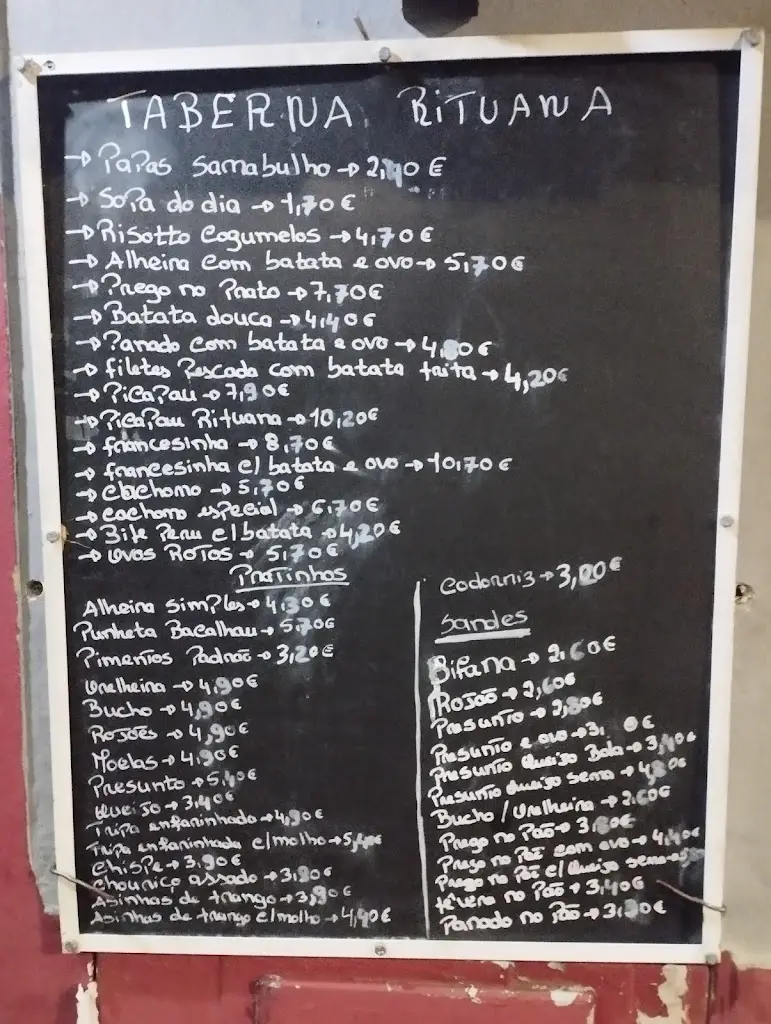 TABERNA RITUANA
→ PAPAS Samabulho → 2,90 €
→ SOPA do dia → 1,70 €
→ Risotto Cogumelos → 4,70 €
→ Alheira com batata e ovo → 5,70 €
→ Prego no Prato → 7,70 €
→ Batata douca → 4,40 €
→ Panado com batata e ovo → 4,80 €
→ filetes Pescada com batata frita → 4,20 €
→ PicaPau → 7,90 €
→ PicaPau Rituana → 10,20 €
→ francesinha → 8,70 €
→ francesinha c/ batata e ovo → 10,70 €
→ Cachorro → 5,70 €
→ cachorro especial → 6,70 €
→ Bife Peru c/ batata → 4,20 €
→ ovos ROTOS → 5,70 €
Pratinhos
Alheira Simples → 4,30 €
Punheta Bacalhau → 5,70 €
Pimentos Padrão → 3,20 €
Orelheira → 4,90 €
Bucho → 4,90 €
Rojões → 4,90 €
Moelas → 4,90 €
Presunto → 5,40 €
Queijo → 3,40 €
Tripa enfarinhada → 4,90 €
Tripa enfarinhada c/ molho → 5,40 €
Chispe → 3,90 €
Chouriço assado → 3,90 €
Asinhas de frango → 3,90 €
Asinhas de frango c/ molho → 4,40 €
Codorniz → 3,00 €
Sandes
Bifana → 2,60 €
Rojão → 2,60 €
Presunto → 2,80 €
Presunto e ovo → 3, 0 €
Presunto Queijo Bola → 3,40 €
Presunto Queijo serra → 4,80 €
Bucho / Orelheira → 2,60 €
Prego no Pão → 3,80 €
Prego no Pão com ovo → 4,40 €
Prego no Pão c/ Queijo serra →
fêvera no Pão → 3,40 €
Panado no Pão → 3,30 €